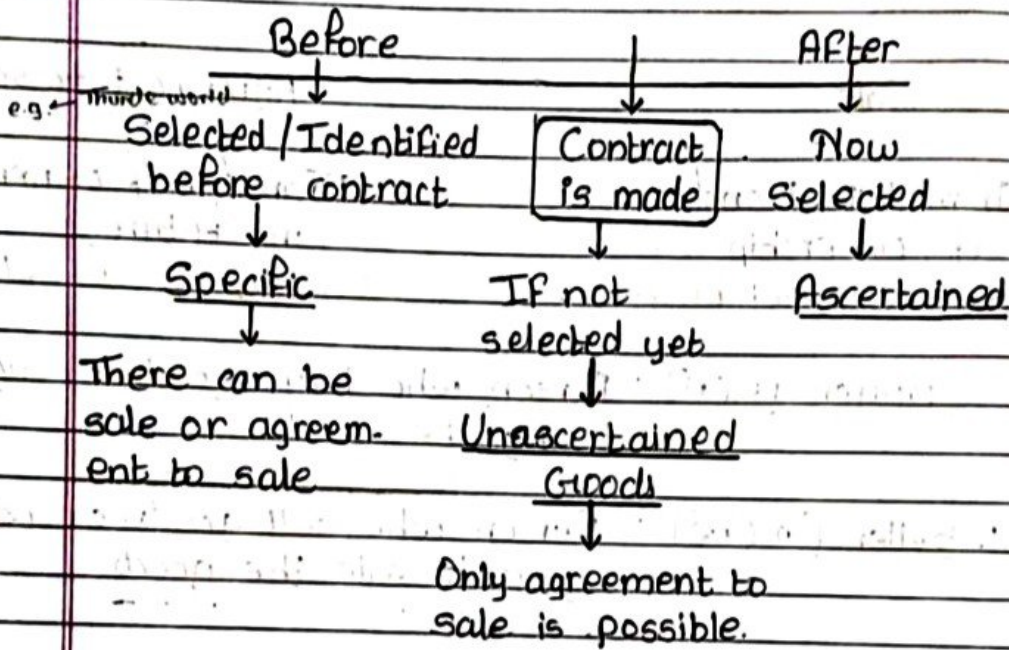 Before
After
e.g.
Selected / Identified
before contract
Contract
is made
Now
Selected
Specific
If not
selected yet
Ascertained
There can be
sale or agreem-
ent to sale
Unascertained
Goods
Only agreement to
sale is possible.